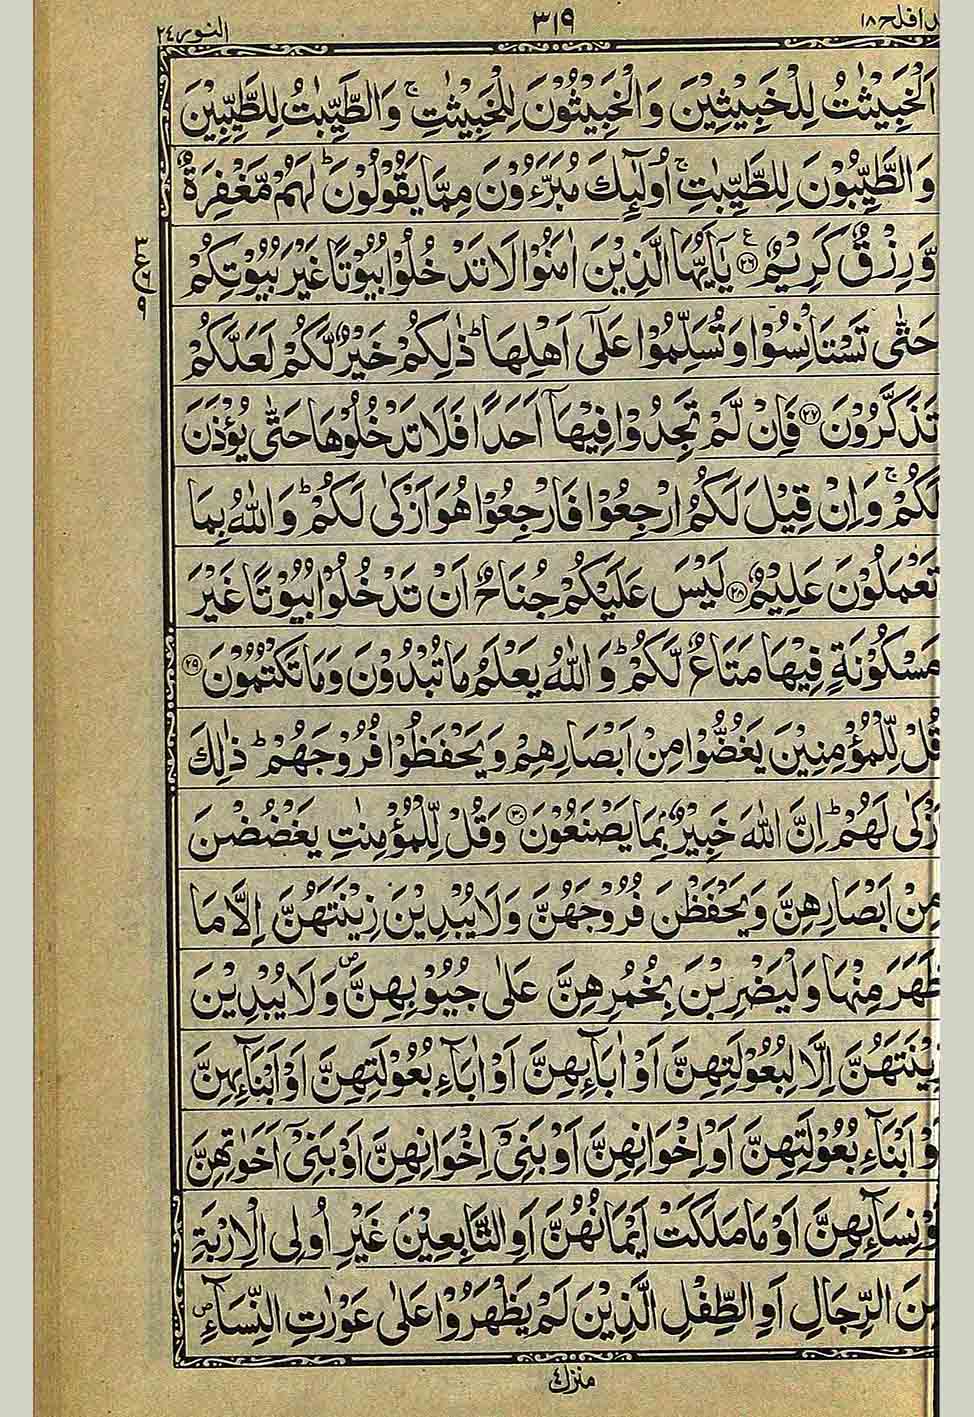 قد افلح ١٨ ٣١٩ النور ٢٤
اَلْخَبِيْثٰتُ لِلْخَبِيْثِيْنَ وَالْخَبِيْثُوْنَ لِلْخَبِيْثٰتِ ۚ وَالطَّيِّبٰتُ لِلطَّيِّبِيْنَ
وَالطَّيِّبُوْنَ لِلطَّيِّبٰتِ ۚ اُولٰٓئِكَ مُبَرَّءُوْنَ مِمَّا يَقُوْلُوْنَ ؕ لَهُمْ مَّغْفِرَةٌ
وَّرِزْقٌ كَرِيْمٌ ﴿٢٦﴾ يٰۤاَيُّهَا الَّذِيْنَ اٰمَنُوْا لَا تَدْخُلُوْا بُيُوْتًا غَيْرَ بُيُوْتِكُمْ
حَتّٰى تَسْتَاْنِسُوْا وَتُسَلِّمُوْا عَلٰٓى اَهْلِهَا ؕ ذٰلِكُمْ خَيْرٌ لَّكُمْ لَعَلَّكُمْ
تَذَكَّرُوْنَ ﴿٢٧﴾ فَاِنْ لَّمْ تَجِدُوْا فِيْهَاۤ اَحَدًا فَلَا تَدْخُلُوْهَا حَتّٰى يُؤْذَنَ
لَكُمْ ۚ وَاِنْ قِيْلَ لَكُمُ ارْجِعُوْا فَارْجِعُوْا هُوَ اَزْكٰى لَكُمْ ؕ وَاللّٰهُ بِمَا
تَعْمَلُوْنَ عَلِيْمٌ ﴿٢٨﴾ لَيْسَ عَلَيْكُمْ جُنَاحٌ اَنْ تَدْخُلُوْا بُيُوْتًا غَيْرَ
مَسْكُوْنَةٍ فِيْهَا مَتَاعٌ لَّكُمْ ؕ وَاللّٰهُ يَعْلَمُ مَا تُبْدُوْنَ وَمَا تَكْتُمُوْنَ ﴿٢٩﴾
قُلْ لِّلْمُؤْمِنِيْنَ يَغُضُّوْا مِنْ اَبْصَارِهِمْ وَيَحْفَظُوْا فُرُوْجَهُمْ ؕ ذٰلِكَ
اَزْكٰى لَهُمْ ؕ اِنَّ اللّٰهَ خَبِيْرٌۢ بِمَا يَصْنَعُوْنَ ﴿٣٠﴾ وَقُلْ لِّلْمُؤْمِنٰتِ يَغْضُضْنَ
مِنْ اَبْصَارِهِنَّ وَيَحْفَظْنَ فُرُوْجَهُنَّ وَلَا يُبْدِيْنَ زِيْنَتَهُنَّ اِلَّا مَا
ظَهَرَ مِنْهَا وَلْيَضْرِبْنَ بِخُمُرِهِنَّ عَلٰى جُيُوْبِهِنَّ ۪ وَلَا يُبْدِيْنَ
زِيْنَتَهُنَّ اِلَّا لِبُعُوْلَتِهِنَّ اَوْ اٰبَآئِهِنَّ اَوْ اٰبَآءِ بُعُوْلَتِهِنَّ اَوْ اَبْنَآئِهِنَّ
اَوْ اَبْنَآءِ بُعُوْلَتِهِنَّ اَوْ اِخْوَانِهِنَّ اَوْ بَنِىْۤ اِخْوَانِهِنَّ اَوْ بَنِىْۤ اَخَوٰتِهِنَّ
اَوْ نِسَآئِهِنَّ اَوْ مَا مَلَكَتْ اَيْمَانُهُنَّ اَوِ التّٰبِعِيْنَ غَيْرِ اُولِى الْاِرْبَةِ
مِنَ الرِّجَالِ اَوِ الطِّفْلِ الَّذِيْنَ لَمْ يَظْهَرُوْا عَلٰى عَوْرٰتِ النِّسَآءِ ۪
منزل ٤